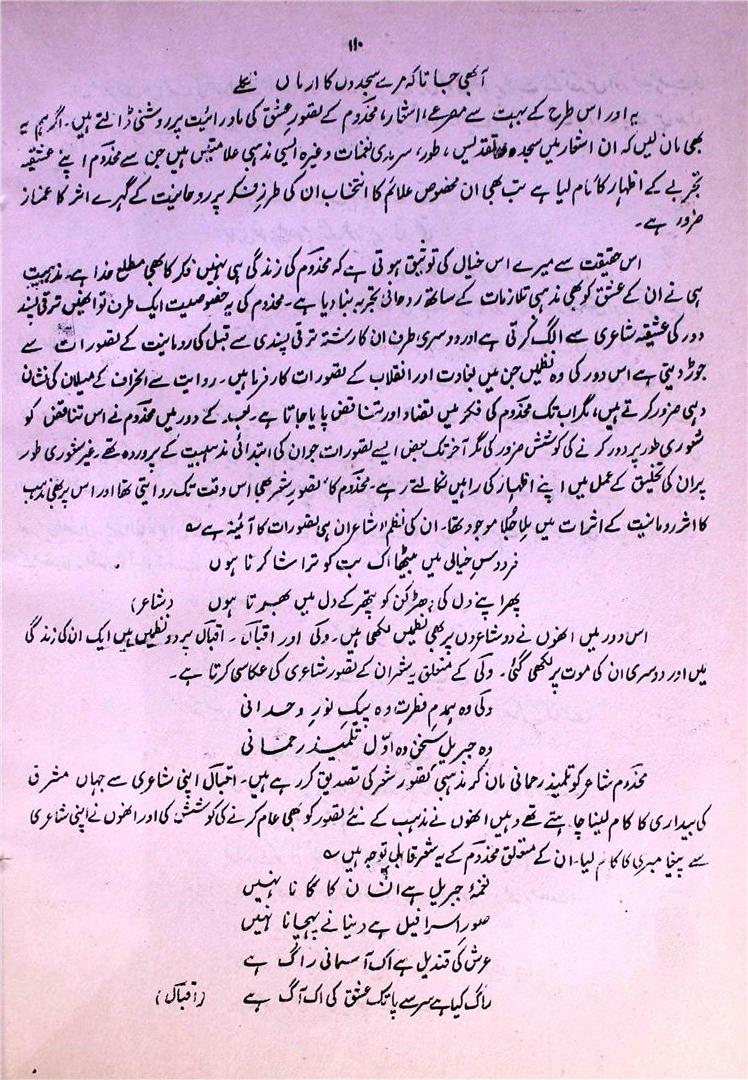 ۱۱۰
آ بھی جا تاکہ مرے سجدوں کا ارماں نکلے
یہ اور اس طرح کے بہت سے مصرعے، اشعار، مخدوم کے تصورِ عشق کی ماورائیت پر روشنی ڈالتے ہیں۔ اگر ہم یہ
بھی مان لیں کہ ان اشعار میں سجدہ، تقدیس، طور، سرمدی نغمات وغیرہ ایسی مذہبی علامتیں ہیں جن سے مخدوم اپنے عشقیہ
تجربے کے اظہار کا کام لیا ہے تب بھی ان مخصوص علائم کا انتخاب ان کی طرزِ فکر پر روحانیت کے گہرے اثر کا غماز
ضرور ہے۔
اس حقیقت سے میرے اس خیال کی توثیق ہوتی ہے کہ مخدوم کی زندگی ہی نہیں فکر کا بھی مطلع خدا ہے۔ مذہبیت
ہی نے ان کے عشق کو بھی مذہبی تلازمات کے ساتھ روحانی تجربہ بنا دیا ہے۔ مخدوم کی یہ خصوصیت ایک طرف تو انھیں ترقی پسند
دور کی عشقیہ شاعری سے الگ کرتی ہے اور دوسری طرف ان کا رشتہ ترقی پسندی سے قبل کی رومانیت کے تصورات سے
جوڑ دیتی ہے اس دور کی وہ نظمیں جن میں بغاوت اور انقلاب کے تصورات کارفرما ہیں۔ روایت سے انحراف کے میلان کی نشان
دہی ضرور کرتے ہیں، مگر اب تک مخدوم کی فکر میں تضاد اور تناقض پایا جاتا ہے۔ بعد کے دور میں مخدوم نے اس تناقض کو
شعوری طور پر دور کرنے کی کوشش ضرور کی مگر آخر تک بعض ایسے تصورات جو ان کی ابتدائی مذہبیت کے پروردہ تھے، غیر شعوری طور
پر ان کی تخلیق کے عمل میں اپنے اظہار کی راہیں نکالتے رہے۔ مخدوم کا تصورِ شعر بھی اس وقت تک روایتی تھا اور اس پر بھی مذہب
کا اثر رومانیت کے اثرات میں ملا جلا موجود تھا۔ ان کی نظم "شاعر ان ہی تصورات کا آئینہ ہے ؎
فردوسِ خیالی میں بیٹھا اک بت کو تراشا کرتا ہوں
پھر اپنے دل کی دھڑکن کو پتھر کے دل میں بھرتا ہوں (شاعر)
اس دور میں انھوں نے دو شاعروں پر بھی نظمیں لکھی ہیں۔ ولی اور اقبال۔ اقبال پر دو نظمیں ہیں ایک ان کی زندگی
میں اور دوسری ان کی موت پر لکھی گئی۔ ولی کے متعلق یہ شعر ان کے تصور شاعری کی عکاسی کرتا ہے۔
ولی وہ ہمدم فطرت وہ پیکِ نورِ وحدانی
وہ جبریلِ سخن وہ اوّل تلمیذِ رحمانی
مخدوم شاعر کو تلمیذ رحمانی مان کر مذہبی تصور شعر کی تصدیق کر رہے ہیں۔ اقبال اپنی شاعری سے جہاں مشرق
کی بیداری کا کام لینا چاہتے تھے وہیں انھوں نے مذہب کے نئے تصور کو بھی عام کرنے کی کوشش کی اور انھوں نے اپنی شاعری
سے پیغامبری کا کام لیا۔ ان کے متعلق مخدوم کے یہ شعر قابلِ توجہ ہیں ؎
نغمۂ جبریل ہے انسان کا گانا نہیں
صورِ اسرافیل ہے دنیا نے پہچانا نہیں
عرش کی قندیل ہے اک آسمانی راگ ہے
راگ کیا ہے سر سے پا تک عشق کی اک آگ ہے (اقبال)